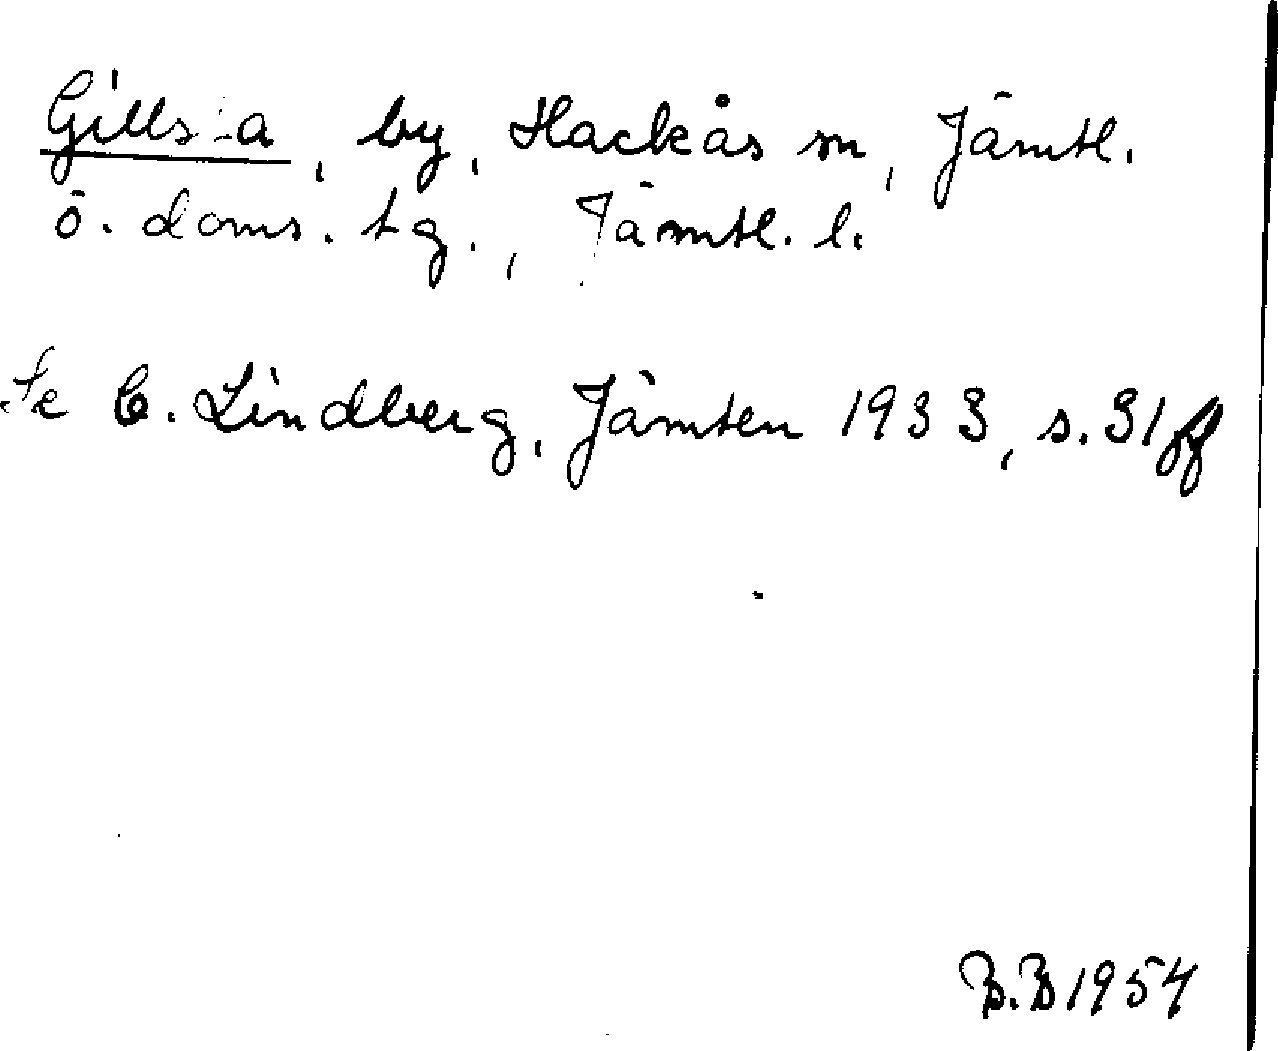 Gillsta, by, Hackås sn, Jämtl.
ö. doms. tg., Jämtl. l.
Se C. Lindberg, Jämten 1933, s. 31 ff
B.B 1954